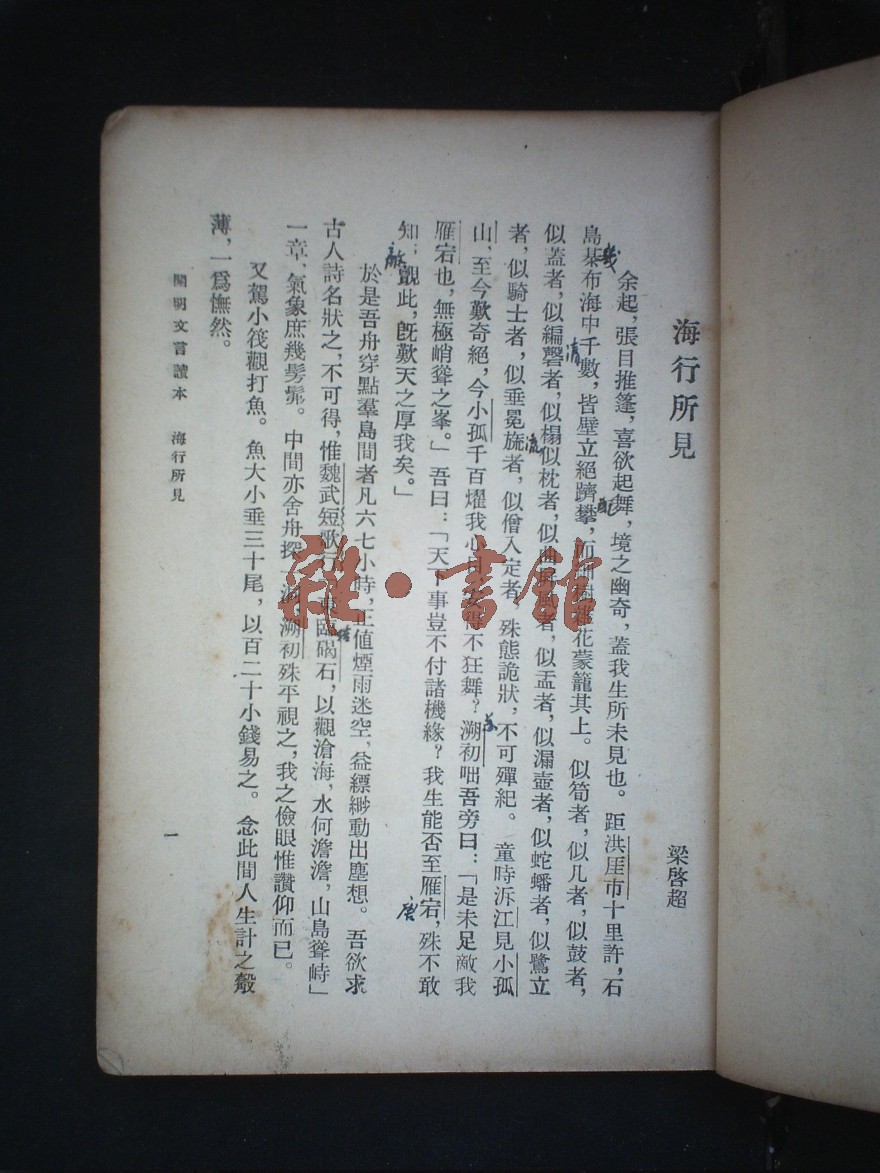 海行所見
梁啓超
余起，張目推篷，喜欲起舞，境之幽奇，蓋我生所未見也。距洪厓市十里許，石
島棊布海中千數，皆壁立絕躋攀，花蒙籠其上。似筍者，似几者，似鼓者，
似蓋者，似編磬者，似榻似枕者，似者，似盂者，似漏壺者，似蛇蟠者，似鷺立
者，似騎士者，似垂冕旒者，似僧入定者，殊態詭狀，不可殫紀。童時泝江見小孤
山，至今歎奇絕，今小孤千百燿我心目，得不狂舞？溯初咄吾旁曰：「是未足敵我
雁宕也，無極峭聳之峯。」吾曰：「天下事豈不付諸機緣？我生能否至雁宕，殊不敢
知；覩此，旣歎天之厚我矣。」
於是吾舟穿點羣島間者凡六七小時，正値煙雨迷空，益縹緲動出塵想。吾欲求
古人詩名狀之，不可得，惟魏武短歌行「東臨碣石，以觀滄海，水何澹澹，山島聳峙」
一章，氣象庶幾髣髴。中間亦舍舟探一洞，溯初殊平視之，我之儉眼惟讚仰而已。
又駕小筏觀打魚。魚大小垂三十尾，以百二十小錢易之。念此間人生計之觳
薄，一爲憮然。
開明文言讀本 海行所見
一
雜·書館